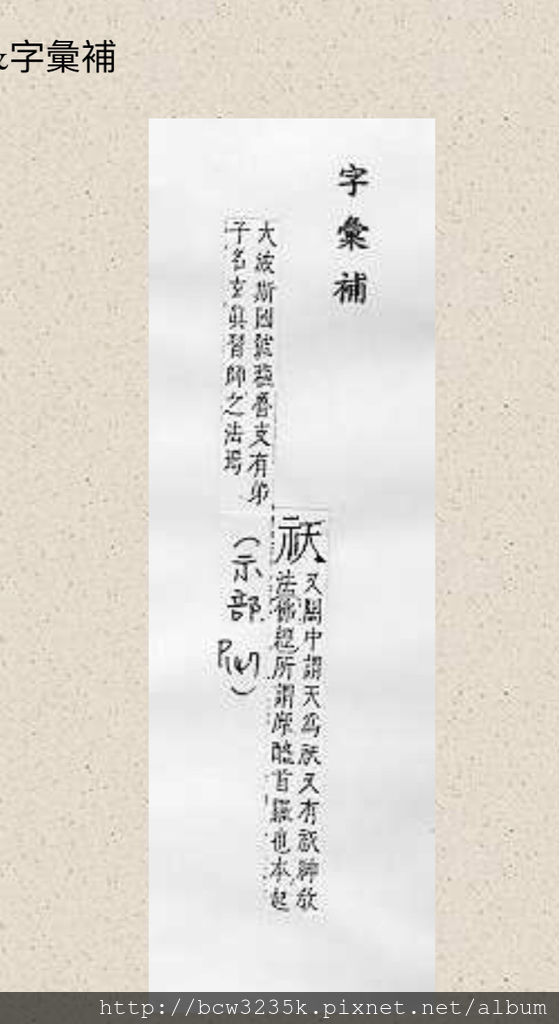 &字彙補
字彙補
祆
又關中謂天為祆又有祆神故
法佛經所謂摩醯首羅也本起
大波斯國號蘓魯支有弟
子名玄真習師之法瑪
(示部)
http://bcw3235k.pixnet.net/album